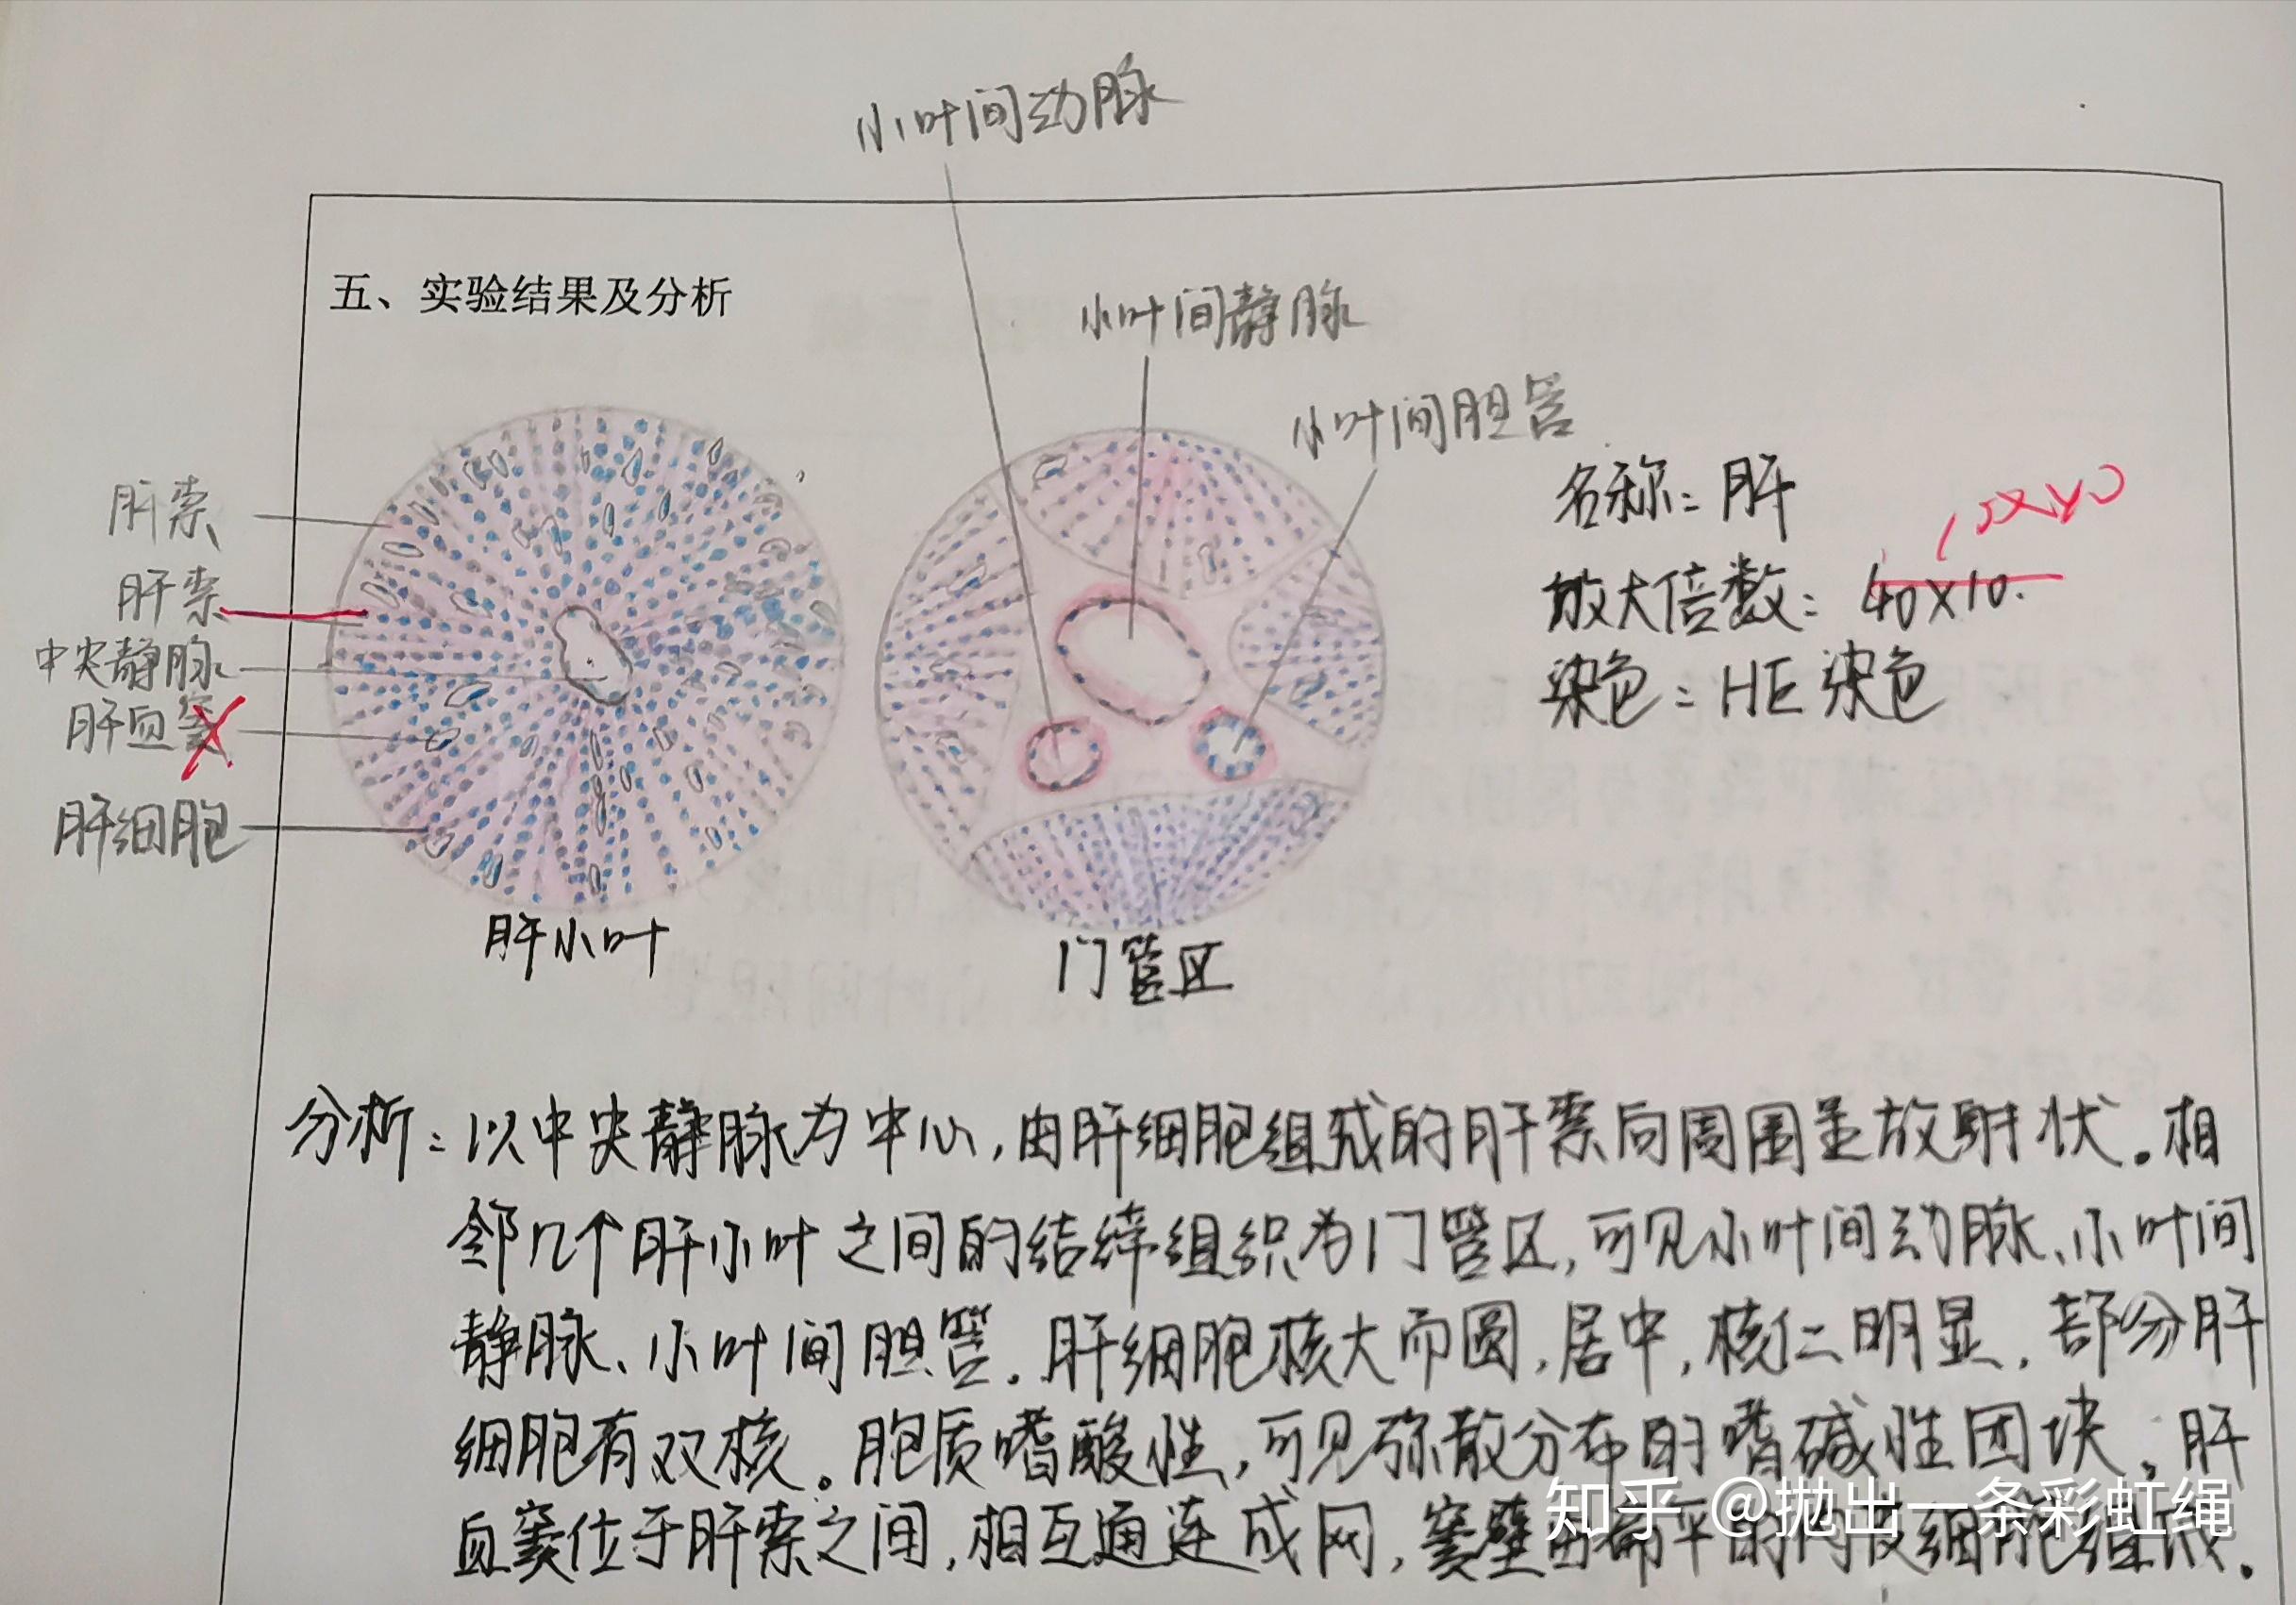 小叶间动脉
五、实验结果及分析
小叶间静脉
小叶间胆管
肝索
肝索
中央静脉
肝血窦
肝细胞
名称：肝
10×40
放大倍数：40×10.
染色：HE染色
肝小叶
门管区
分析：以中央静脉为中心，由肝细胞组成的肝索向周围呈放射状。相
邻几个肝小叶之间的结缔组织为门管区，可见小叶间动脉、小叶间
静脉、小叶间胆管。肝细胞核大而圆，居中，核仁明显，部分肝
细胞有双核。胞质嗜酸性，可见弥散分布的嗜碱性团块。肝
血窦位于肝索之间，相互通连成网，窦壁由扁平的内皮细胞组成。
知乎 @抛出一条彩虹绳